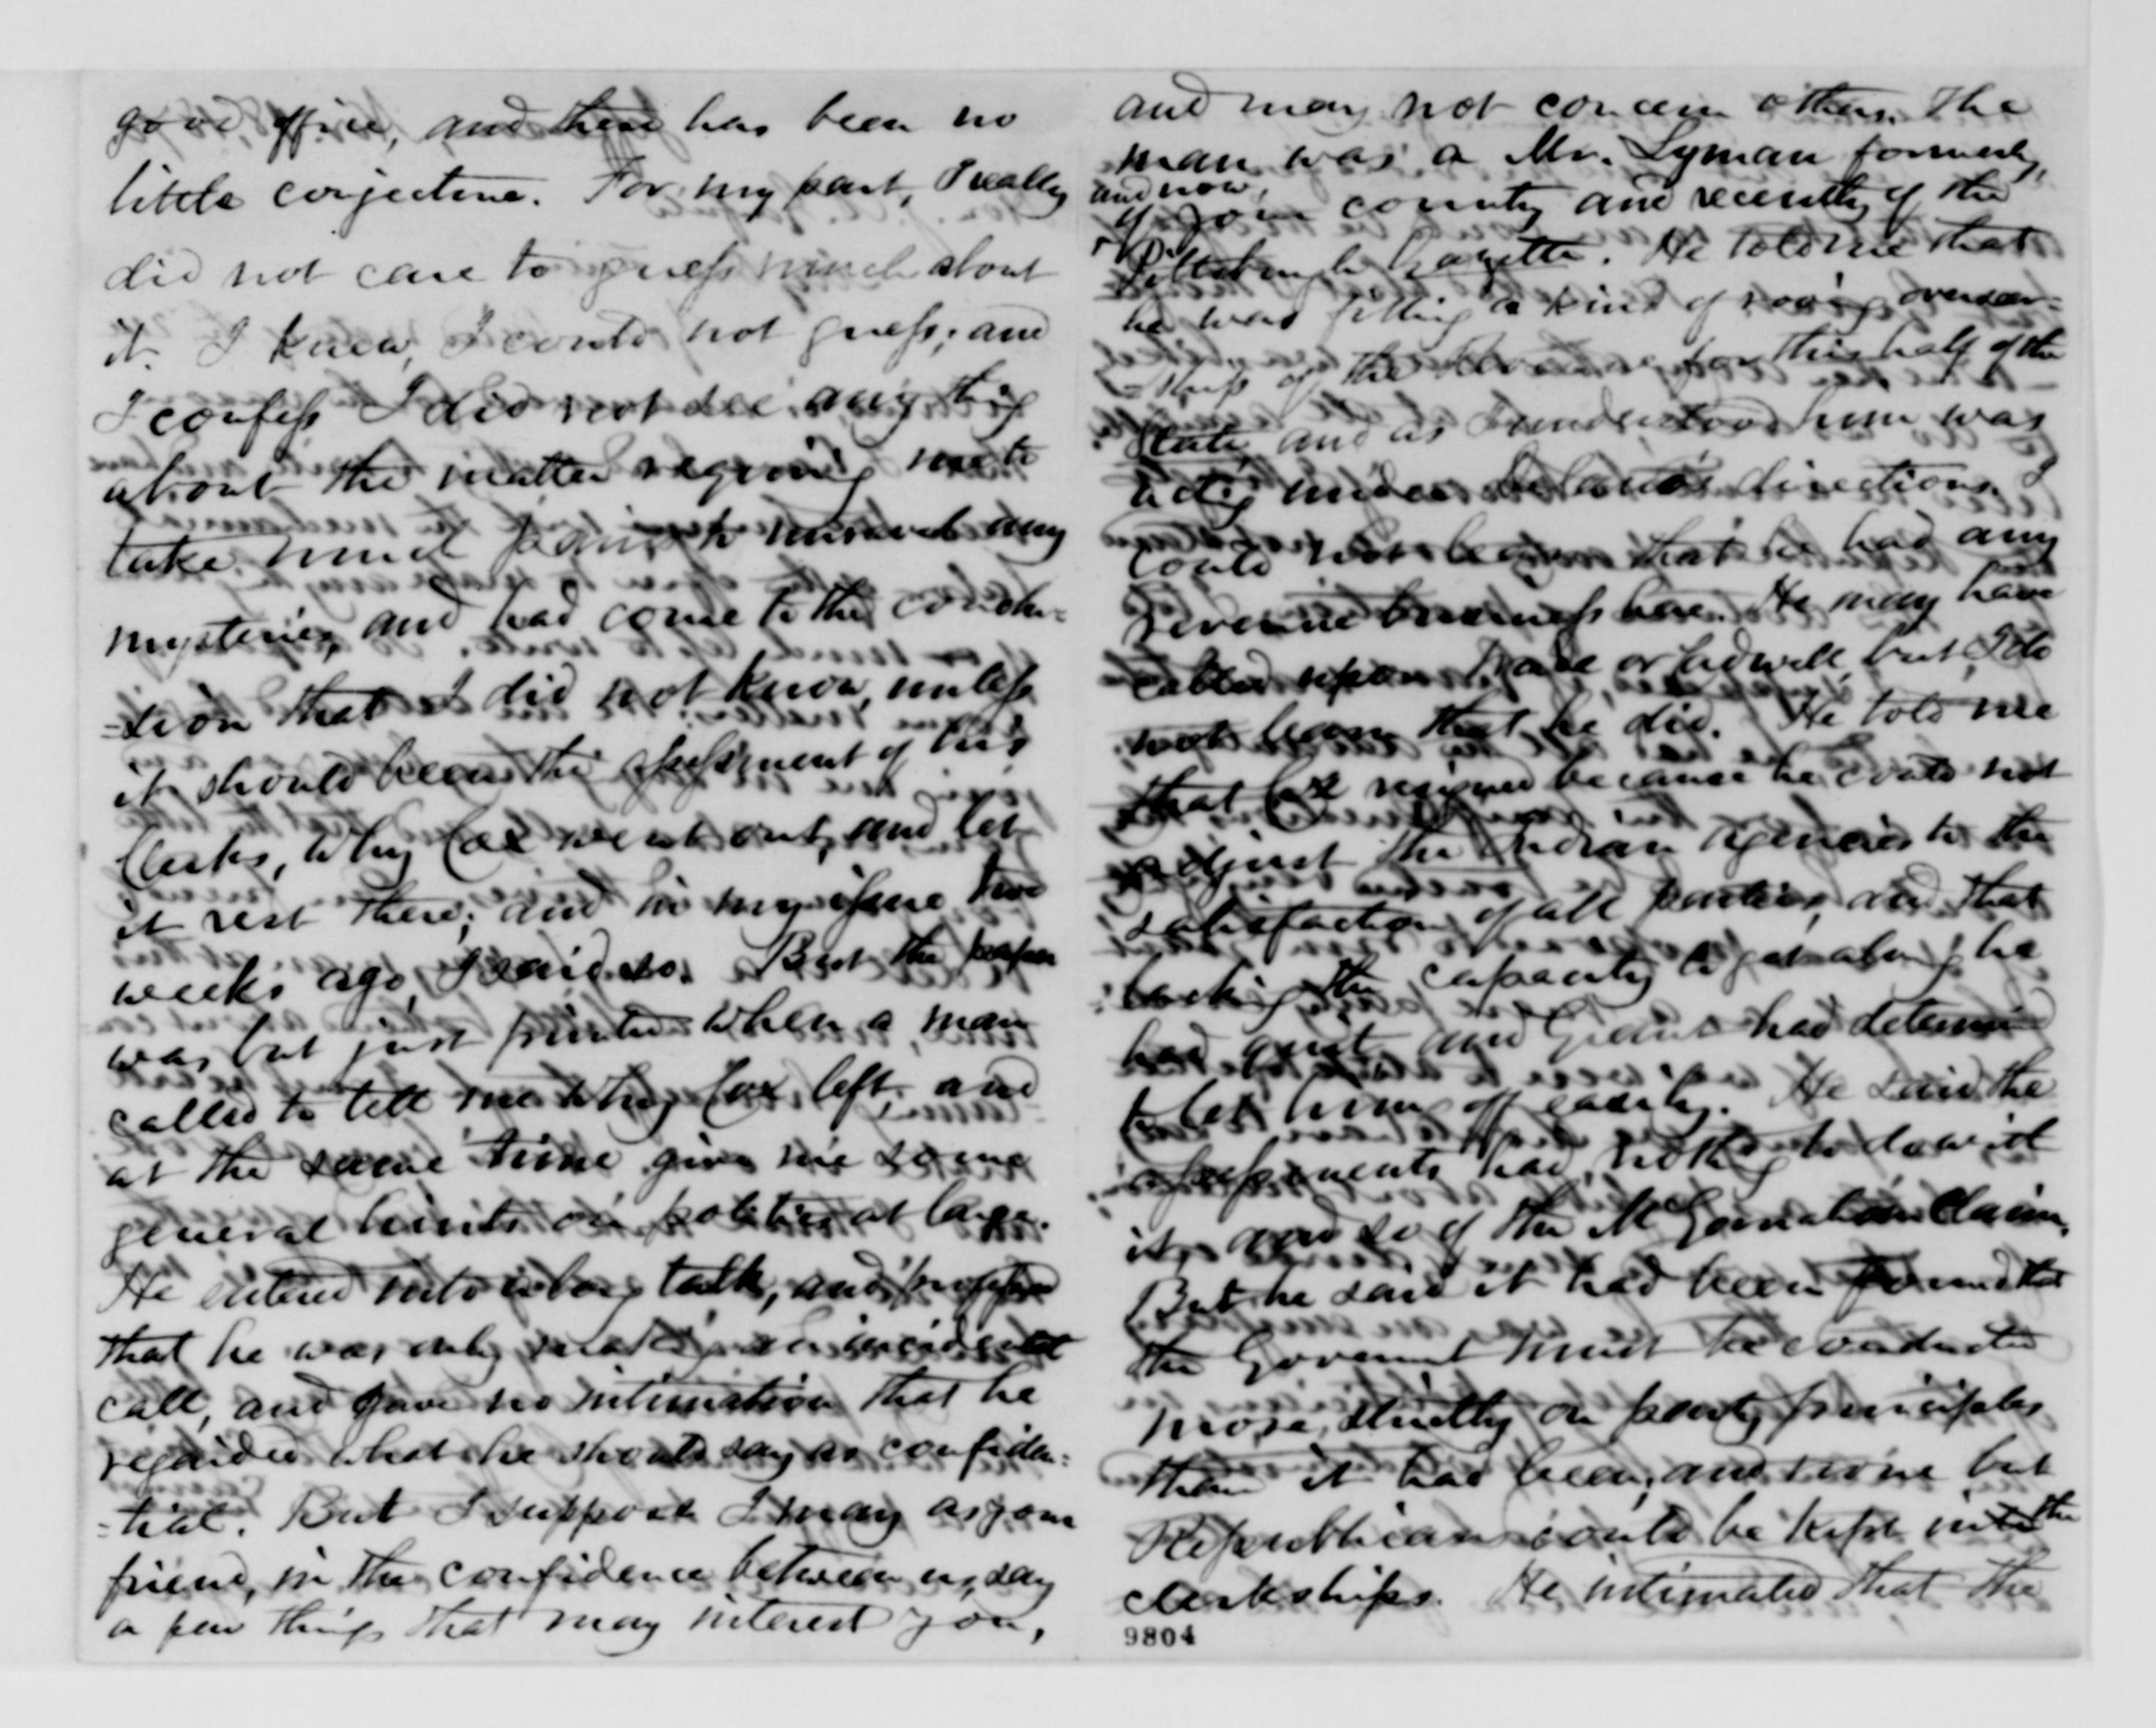 good office, and there has been no
little conjecture. For my part, I really
did not care to guess much about
it. I knew, I could not guess; and
I confess I did not see any thing
about the matter requiring me to
take much pains to unravel any
mysteries, and had come to the conclu-
-sion that I did not know, unless
it should been the assessment of his
Clerks, why Cox went out, and let
it rest there; and in my issue two
weeks ago, I said so. But the paper
was but just printed when a man
called to tell me why Cox left, and
at the same time give me some
general hints on politics at large.
He entered into a long talk, and
that he was only making an incidental
call, and gave no intimation that he
regarded what he should say as confiden-
-tial. But I suppose I may as your
friend, in the confidence between us, say
a few things that may interest you,
and may not concern others. The
man was a Mr. Lyman formerly,
and now,
of your county and recently of the
Pittsburgh Gazette. He told me that
he was filling a kind of roving overseer-
-ship of the Revenue for this half of the
State, and as I understood him was
acting under Delano's directions. I
could not learn that he had any
revenue business here. He may have
called upon or but I do
not learn that he did. He told me
that Cox resigned because he could not
adjust the Indian Agencies to the
satisfaction of all parties, and that
lacking the capacity to get along he
had quit, and Grant had determined
to let him off easily. He said the
assessments had nothing to do with
it, and so of the McGarrahan Claim.
But he said it had been found that
the Goverment must be conducted
more strictly on party principles
than it had been, and none but
Republicans could be kept in the
clerkships. He intimated that the
9804